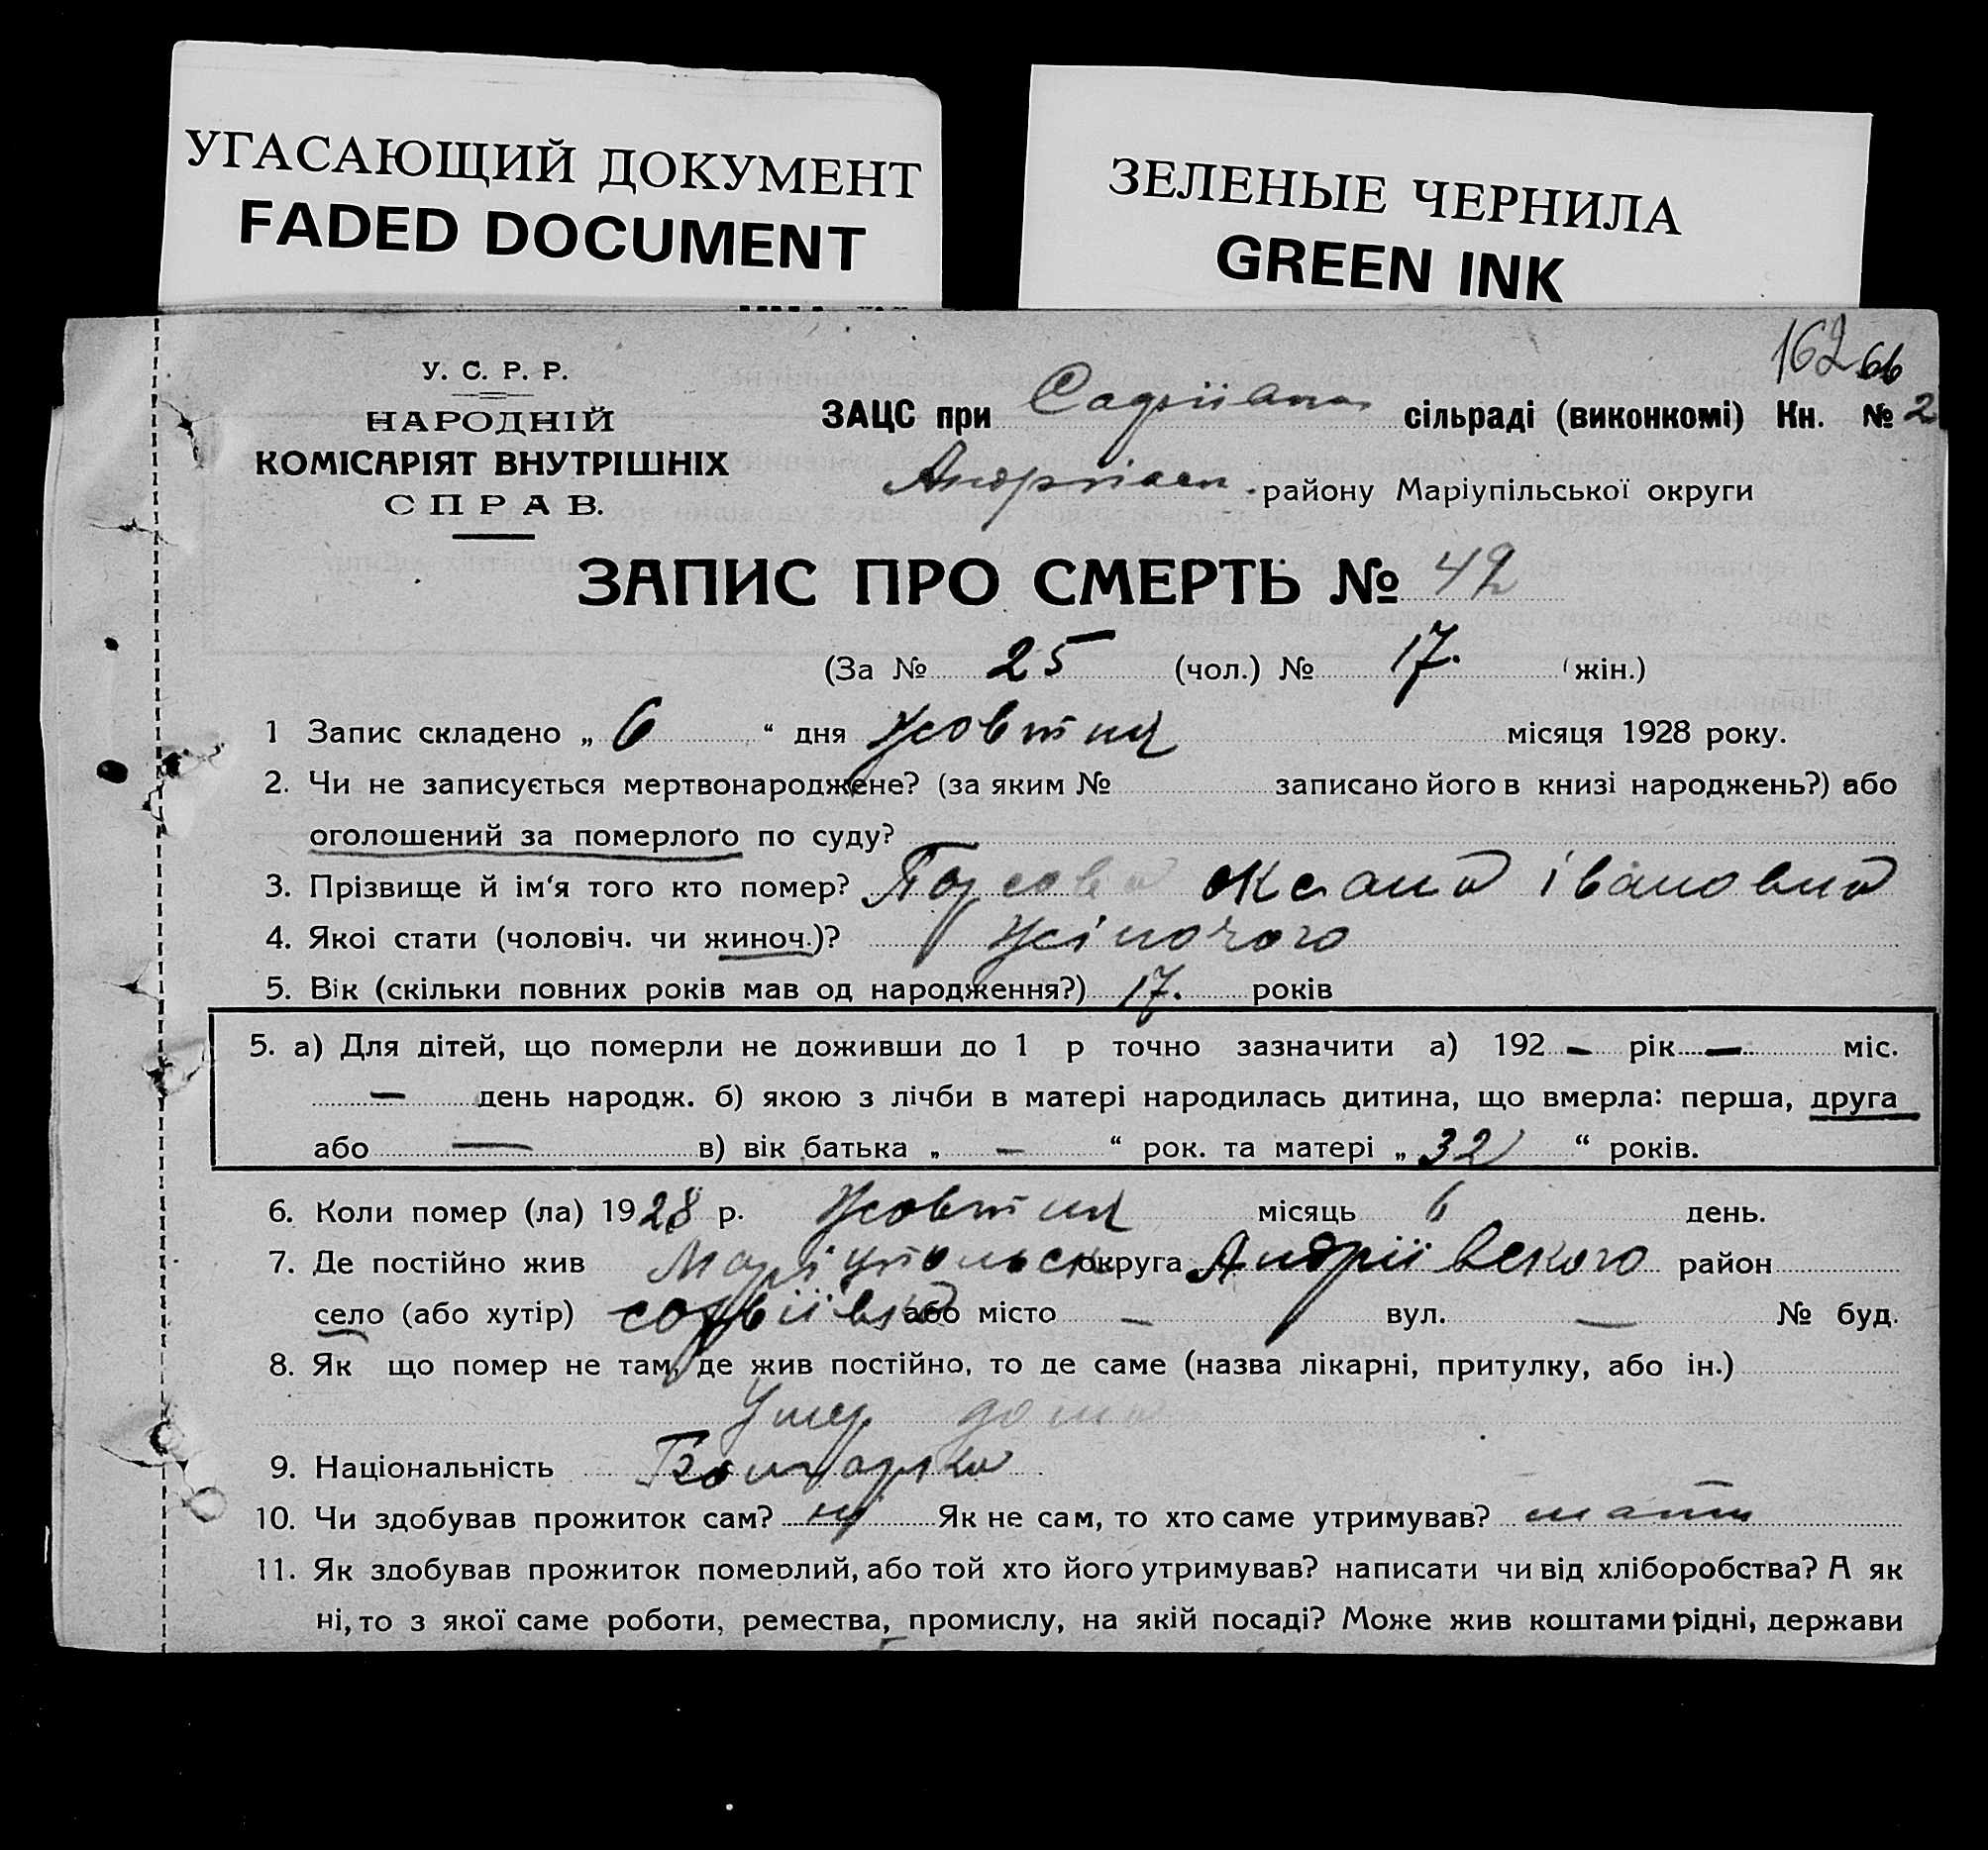 УГАСАЮЩИЙ ДОКУМЕНТ
FADED DOCUMENT
ЗЕЛЕНЫЕ ЧЕРНИЛА
GREEN INK
162 66
У. С. Р. Р.
НАРОДНІЙ
КОМІСАРІЯТ ВНУТРІШНІХ
СПРАВ.
ЗАЦС при сільраді (виконкомі) Кн. № 2
району Маріупільської округи
ЗАПИС ПРО СМЕРТЬ № 42
(За № 25 (чол.) № 17. (жін.)
1 Запис складено „ 6 “ дня Жовтня місяця 1928 року.
2. Чи не записується мертвонароджене? (за яким № записано його в книзі народжень?) або
оголошений за померлого по суду?
3. Прізвище й ім‘я того кто помер? Оксана Івановна
4. Якоі стати (чоловіч. чи жиноч.)? Жіночого
5. Вік (скільки повних років мав од народження?) 17. років
5. а) Для дітей, що померли не доживши до 1 р точно зазначити а) 192 – рік – міс.
– день народж. б) якою з лічби в матері народилась дитина, що вмерла: перша, друга
або — в) вік батька „ – “ рок. та матері „ 32 “ років.
6. Коли помер (ла) 1928 р. Жовтня місяць 6 день.
7. Де постійно жив Маріупольск округа Андріївського район
село (або хутір) Софіївка або місто – вул. – № буд.
8. Як що помер не там, де жив постійно, то де саме (назва лікарні, притулку, або ін.)
Умер дома
9. Національність Болгарка
10. Чи здобував прожиток сам? ні Як не сам, то хто саме утримував? мати
11. Як здобував прожиток померлий, або той хто його утримував? написати чи від хліборобства? А як
ні, то з якої саме роботи, ремества, промислу, на якій посаді? Може жив коштами рідні, держави